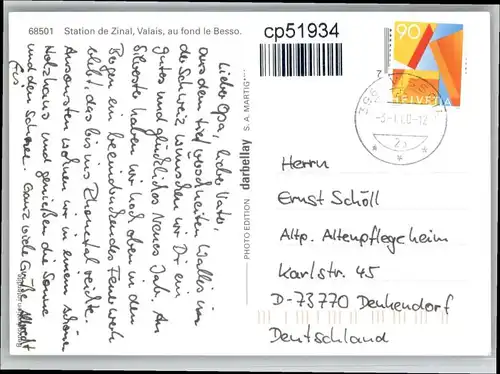 68501 Station de Zinal, Valais, au fond le Besso.
cp51934
Lieber Opa, lieber Vati,
aus dem tief verschneiten Wallis in
der Schweiz wünschen wir Dir ein
gutes und glückliches Neues Jahr. An
Silvester haben wir hoch oben in den
Bergen ein beeindruckendes Feuerwerk
erlebt, das bis ins Rhonetal reichte.
Ansonsten wohnen wir in einem schönen
Holzhaus und genießen die Sonne
und den Schnee. Ganz viele Grüße Albrecht
Iris
PHOTO EDITION darbellay S. A. MARTIGNY
90
HELVETIA
-3-1.00-12
Herrn
Ernst Schöll
Altp. Altenpflegeheim
Karlstr. 45
D-73770 Denkendorf
Deutschland